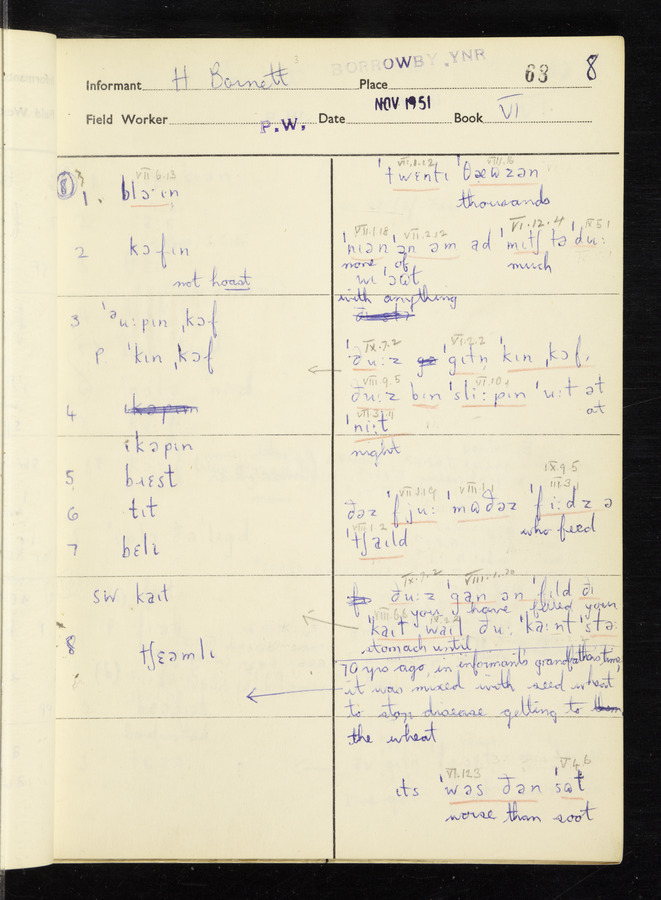 BORROWBY, YNR
Informant H Barnett Place 63 8
NOV 1951
Field Worker P.W. Date Book VI
8
VII 6.13
1. blɔ·ɪn
2 kɔfɪn
not hoast
3 ˈəu:pɪn ˌkɔf
P ˈkɪn ˌkɔf
4
ɪkəpɪn
5 bɪɛst
6 tɪt
7 bɛlɪ
SW kaɪt
8 tʃɛəmlɪ
VII.1.12 VIII.16
ˈtwɛntɪ ˈθæwzən
thousands
VII.1.18 VII.2.12 VI.12.4 IX 5 1
ˈnɪən ˈən əm ad ˈmɪtʃ tə ˈdu:
none of much
wɪ ˈɔwt
with anything
IX.7.2 VI.2.2
ðu:z ˈgɪtn ˈkɪn ˌkɔf.
VIII 9.5 VI.10
ðu:z bɪn ˈsli:pɪn ˈu:t ət
at
VII.3.11
ˈni:t
night
IX.9.5
VII.1.19 VIII.1.1 III.3.1
ðəz ˈfju: ˈmɷðəz ˈfi:dz ə
VIII.1.2
ˈtʃaɪld who feed
IX.7.2 VIII.1.20
ðu:z ˈgan ən ˈfɪld ðɪ
you have filled your
VIII 6.6 IX.2.2
ˈkaɪt waɪl ðu: ˈka:nt ˈstə:
stomach until
70 yrs ago, in informant's grandfathers time,
it was mixed with seed wheat
to stop disease getting to
the wheat
VI.12.3 V 4 6
ɪts ˈwas ðən ˈsɷt
worse than soot